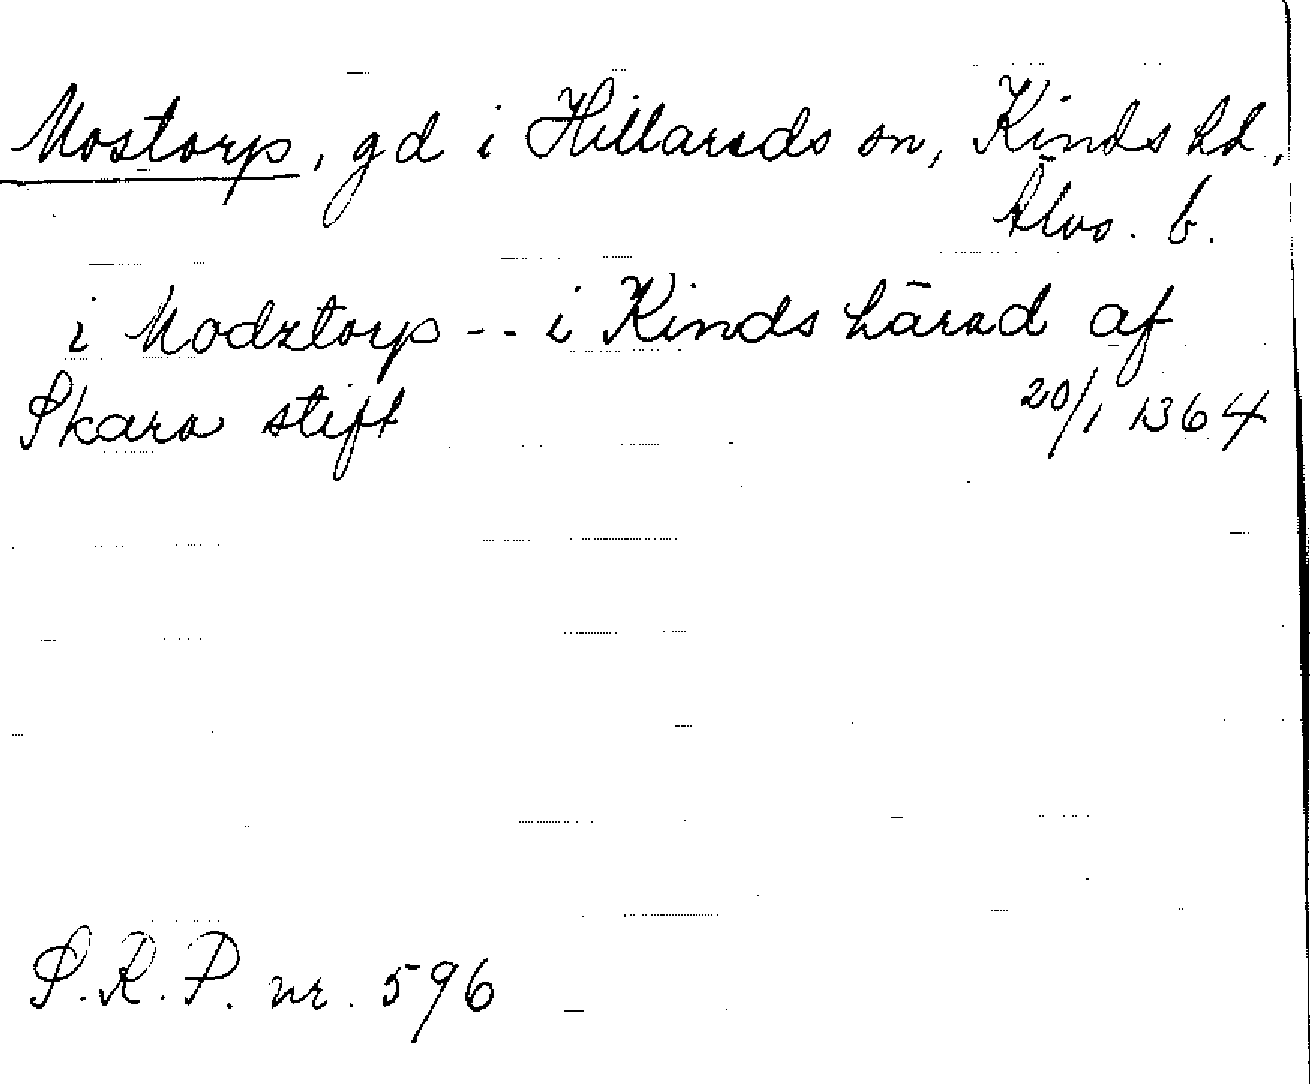 Mostorp, gd i Hillareds sn, Kinds hd,
Älvs. b.
i Modztorp -- i Kinds härad af
Skara stift 20/1 1364
S.R.P. nr. 596